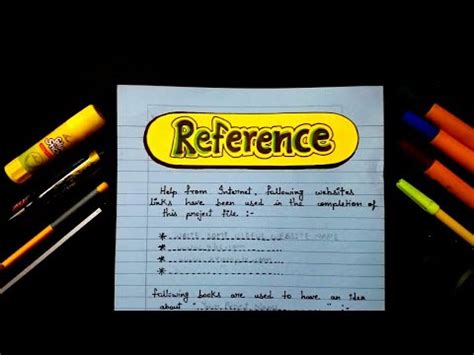 Reference
Help from Internet, following websites
links have been used in the completion of
this project file :-
*
*
*
*
following books are used to have an idea
about " " :-